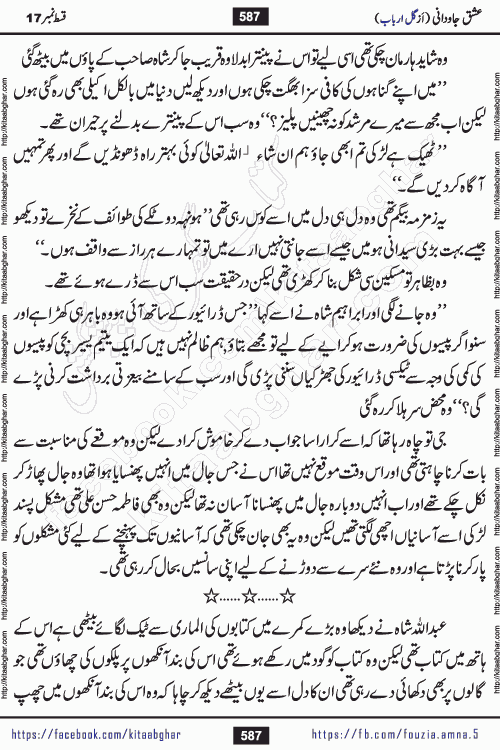 عشق جاودانی (از گل ارباب)
587
قسط نمبر 17
وہ شاید ہار مان چکی تھی اسی لیے تو اس نے پینترا بدلا وہ قریب جا کر شاہ صاحب کے پاؤں میں بیٹھ گئی
”میں اپنے گناہوں کی کافی سزا بھگت چکی ہوں اور دیکھ لیں دنیا میں بالکل اکیلی بھی رہ گئی ہوں
لیکن اب مجھ سے میرے مرشد کو نہ چھینیں پلیز؟“ وہ سب اس کے پینترے بدلنے پر حیران تھے۔
”ٹھیک ہے لڑکی تم ابھی جاؤ ہم ان شاء اللہ تعالیٰ کوئی بہتر راہ ڈھونڈیں گے اور پھر تمہیں
آگاہ کر دیں گے۔“
یہ زمزمہ بیگم تھی وہ دل ہی دل میں اسے کوس رہی تھی ”ہونہہ دو ٹکے کی طوائف کے نخرے تو دیکھو
جیسے بہت بڑی سیدانی ہو میں جیسے اسے جانتی نہیں ارے میں تو تمہارے ہر راز سے واقف ہوں۔“
وہ بظاہر تو مسکین سی شکل بنا کر کھڑی تھی لیکن در حقیقت سب اس سے ڈرے ہوئے تھے۔
”وہ جانے لگی اور ابراہیم شاہ نے اسے کہا“ جس ڈرائیور کے ساتھ آئی ہو وہ باہر ہی کھڑا ہے اور
سنو اگر پیسوں کی ضرورت ہو کرایے کے لیے تو مجھے بتاؤ ہم ظالم نہیں ہیں کہ ایک یتیم یسیر بچی کو پیسوں
کی کمی کی وجہ سے ٹیکسی ڈرائیور کی جھڑکیاں سننی پڑی گی اور سب کے سامنے بیعزتی برداشت کرنی پڑے
گی؟“ وہ محض سر ہلا کر رہ گئی
جی تو چاہ رہا تھا کہ اسے کرارا سا جواب دے کر خاموش کرا دے لیکن وہ موقعے کی مناسبت سے
بات کرنا چاہتی تھی اور اس وقت موقع نہیں تھا اس نے جس جال میں انہیں پھنسایا ہوا تھا وہ جال پھاڑ کر
نکل چکے تھے اور اب انہیں دوبارہ جال میں پھنسانا آسان نہ تھا لیکن وہ بھی فاطمہ حسن علی تھی مشکل پسند
لڑکی اسے آسانیاں اچھی لگتی تھیں لیکن وہ یہ بھی جان چکی تھی کہ آسانیوں تک پہنچنے کے لیے کئی مشکلوں کو
پار کرنا پڑتا ہے اور وہ نئے سرے سے دوڑنے کے لیے اپنی سانسیں بحال کر رہی تھی۔
☆......☆......☆
عبداللہ شاہ نے دیکھا وہ بڑے کمرے میں کتابوں کی الماری سے ٹیک لگائے بیٹھی ہے اس کے
ہاتھ میں کتاب تھی لیکن وہ کتاب کو گود میں رکھے ہوئے تھی اس کی بند آنکھوں پر پلکوں کی چھاؤں تھی جو
گالوں پر بھی دکھائی دے رہی تھی ان کا دل اسے یوں بیٹھے دیکھ کر چاہا کہ وہ اس کی بند آنکھوں میں چھپ
https://facebook.com/kitaabghar
587
https://fb.com/fouzia.amna.5
http://kitaabghar.com
http://kitaabghar.com